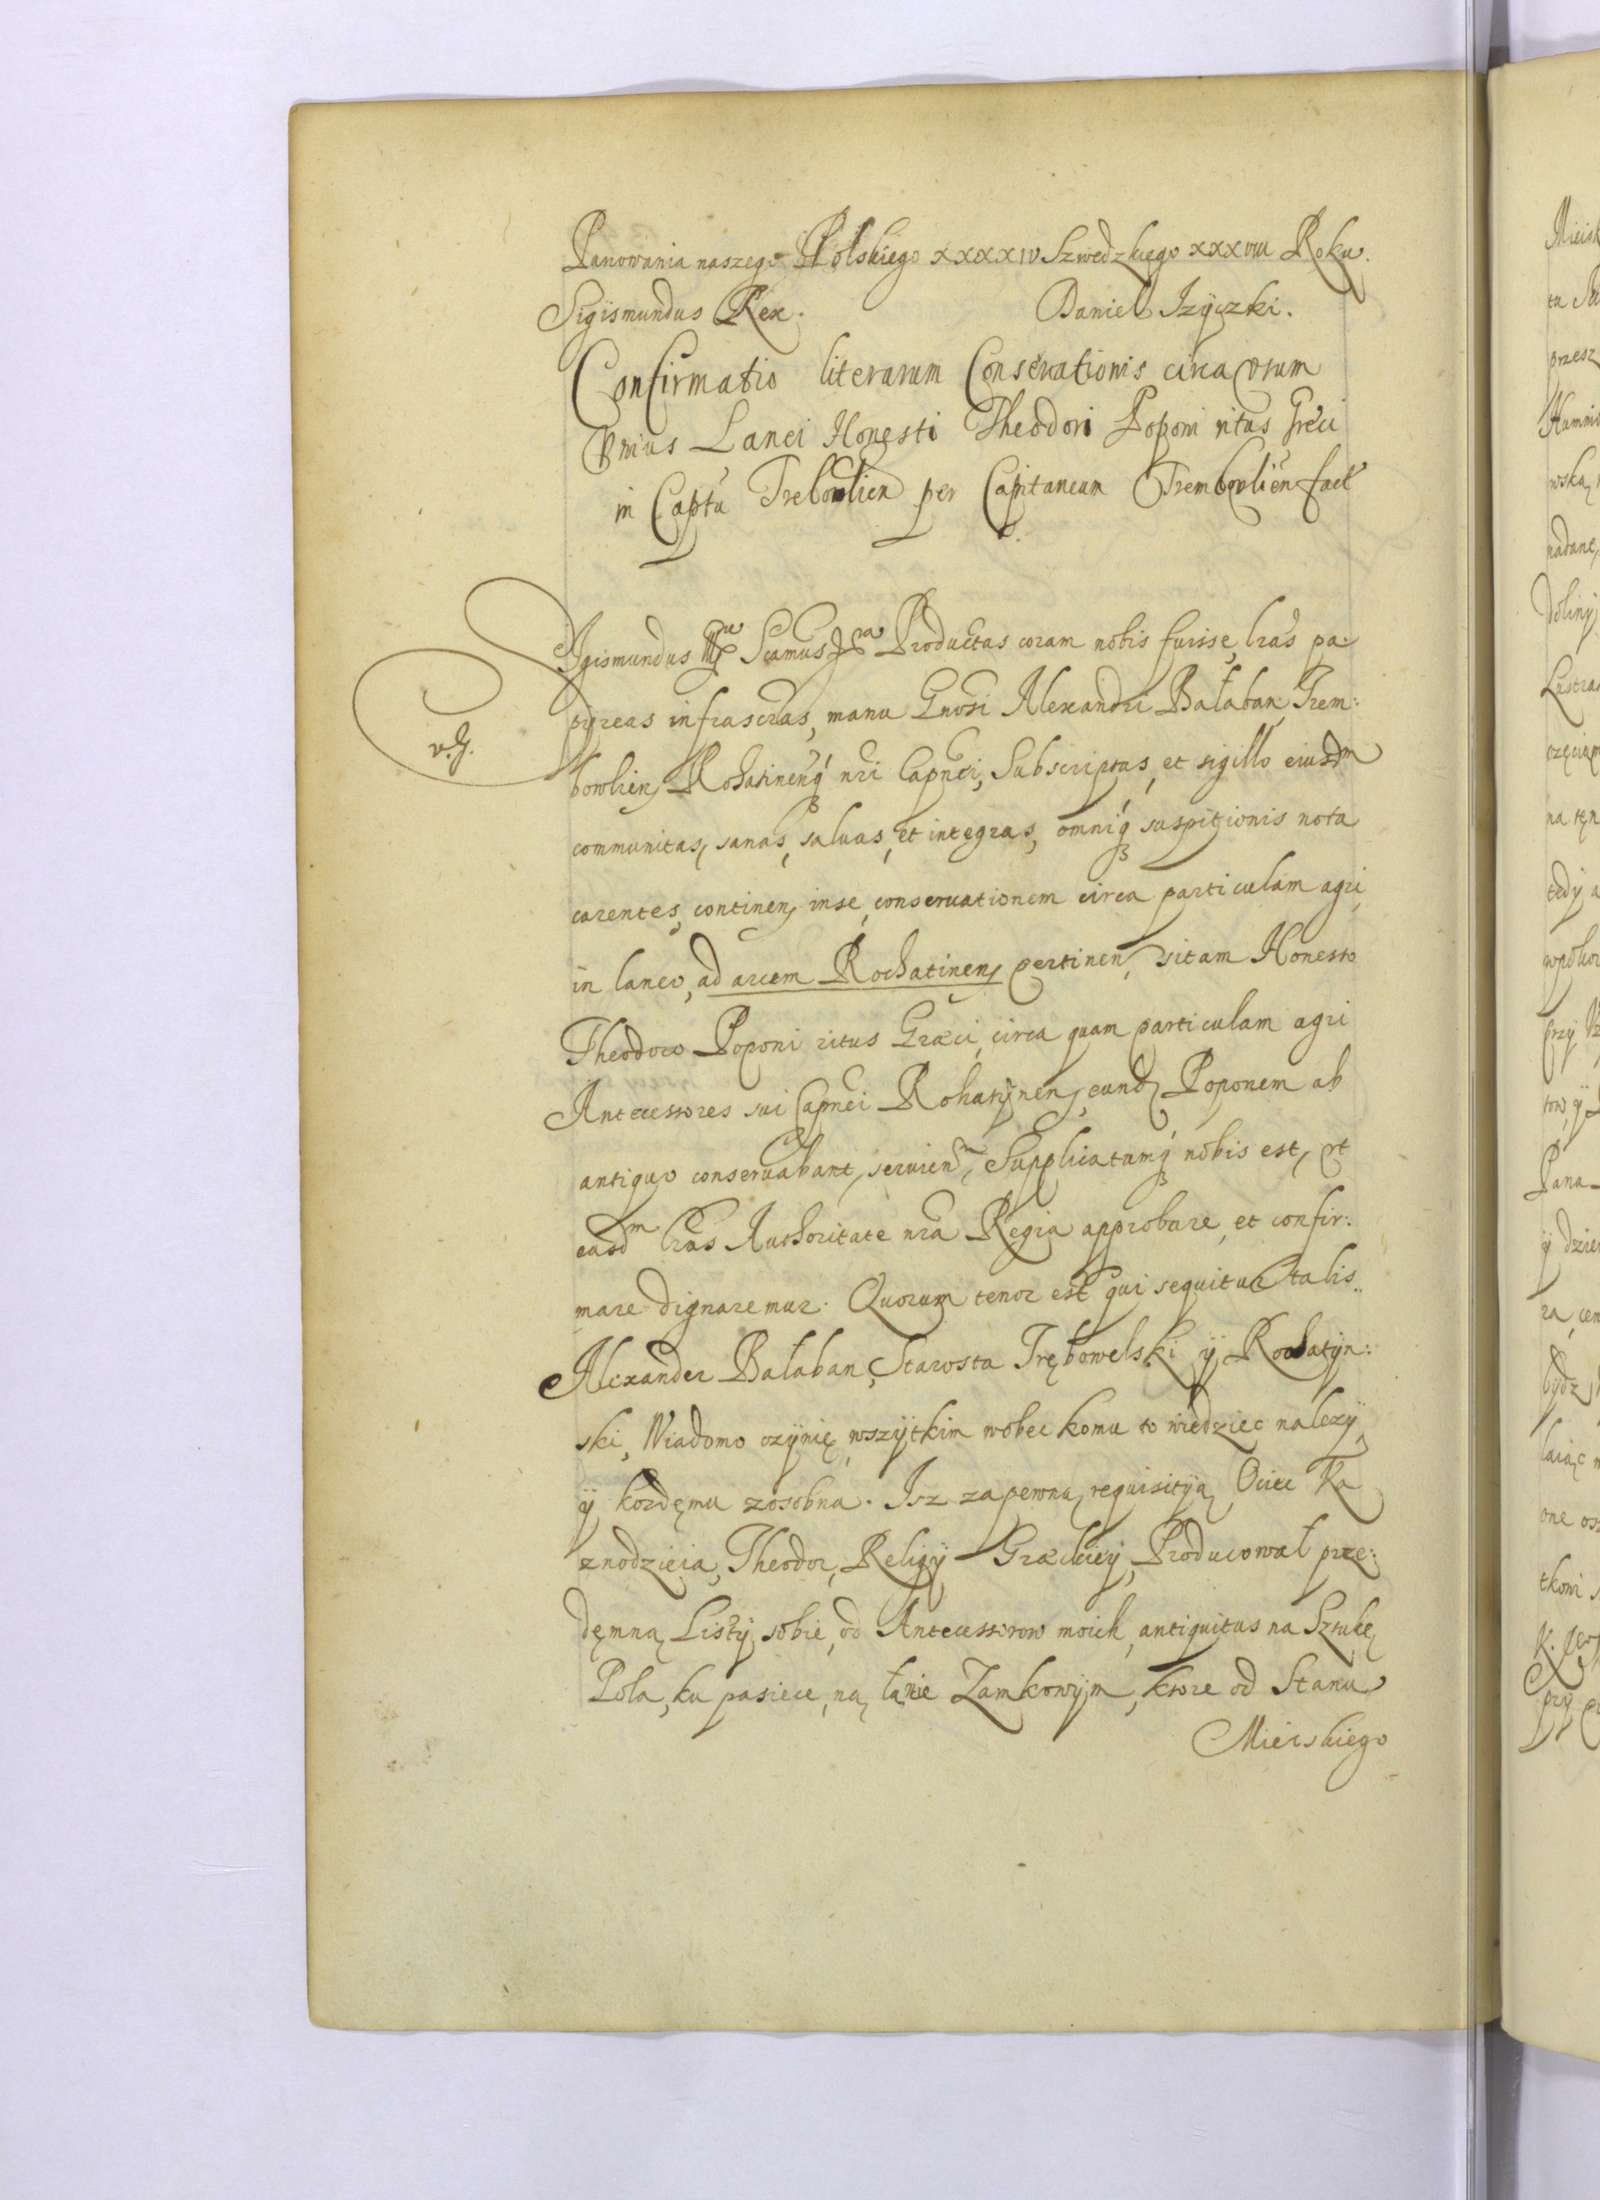 Panowania naszego Polskiego xxxxıv Szwedzkiego xxxvııı Roku.
Sigismundus Rex. Daniel Izÿczki.
Confirmatio literarum Conseruationis circa vsum
Vnius Lanei Honesti Theodori Poponi ritus Greci
in Captu Trebowlien per Capitaneum Trembowlien fact
Sigismundus Scamus Productas coram nobis fuisse, lras pa:
pyreas infrascras, manu Gnosi Alexandri Bałaban, Trem:
bowlien, Rohatinenq nri Capnei, Subscriptas, et sigillo eiusdm
communitas, sanas, saluas, et integras, omniq suspitionis nota
carentes, continen, inse, conseruationem circa particulam agri,
in laneo, ad arcem Rochatinen, pertinen, sitam Honesto
Theodoro Poponi ritus Græci, circa quam particulam agri
Antecessores sui Capnei Rohatÿnen, eund Poponem ab
antiquo conseruabant, seruien, Supplicatumq nobis est, vt
easdm lras Authoritate nra Regia approbare, et confir:
mare dignaremur. Quorum tenor est qui sequitur talis..
Alexander Bałaban, Starosta Trębowelski ÿ Rochatÿn:
ski, Wiadomo czÿnię, wszÿtkim wobec komu to wiedziec nalezÿ,
ÿ kozdęmu zosobna. Isz zapewną requisitÿą, Ociec Ka
znodzieia, Theodor, Religÿ Græckieÿ, Producował prze:
dęmną Listÿ sobie, od Antecessorow moich, antiquitus na Sztukę
Pola, ku pasiece, na łanie Zamkowÿm, ktore od Stanu
Mieiskiego
v.g.